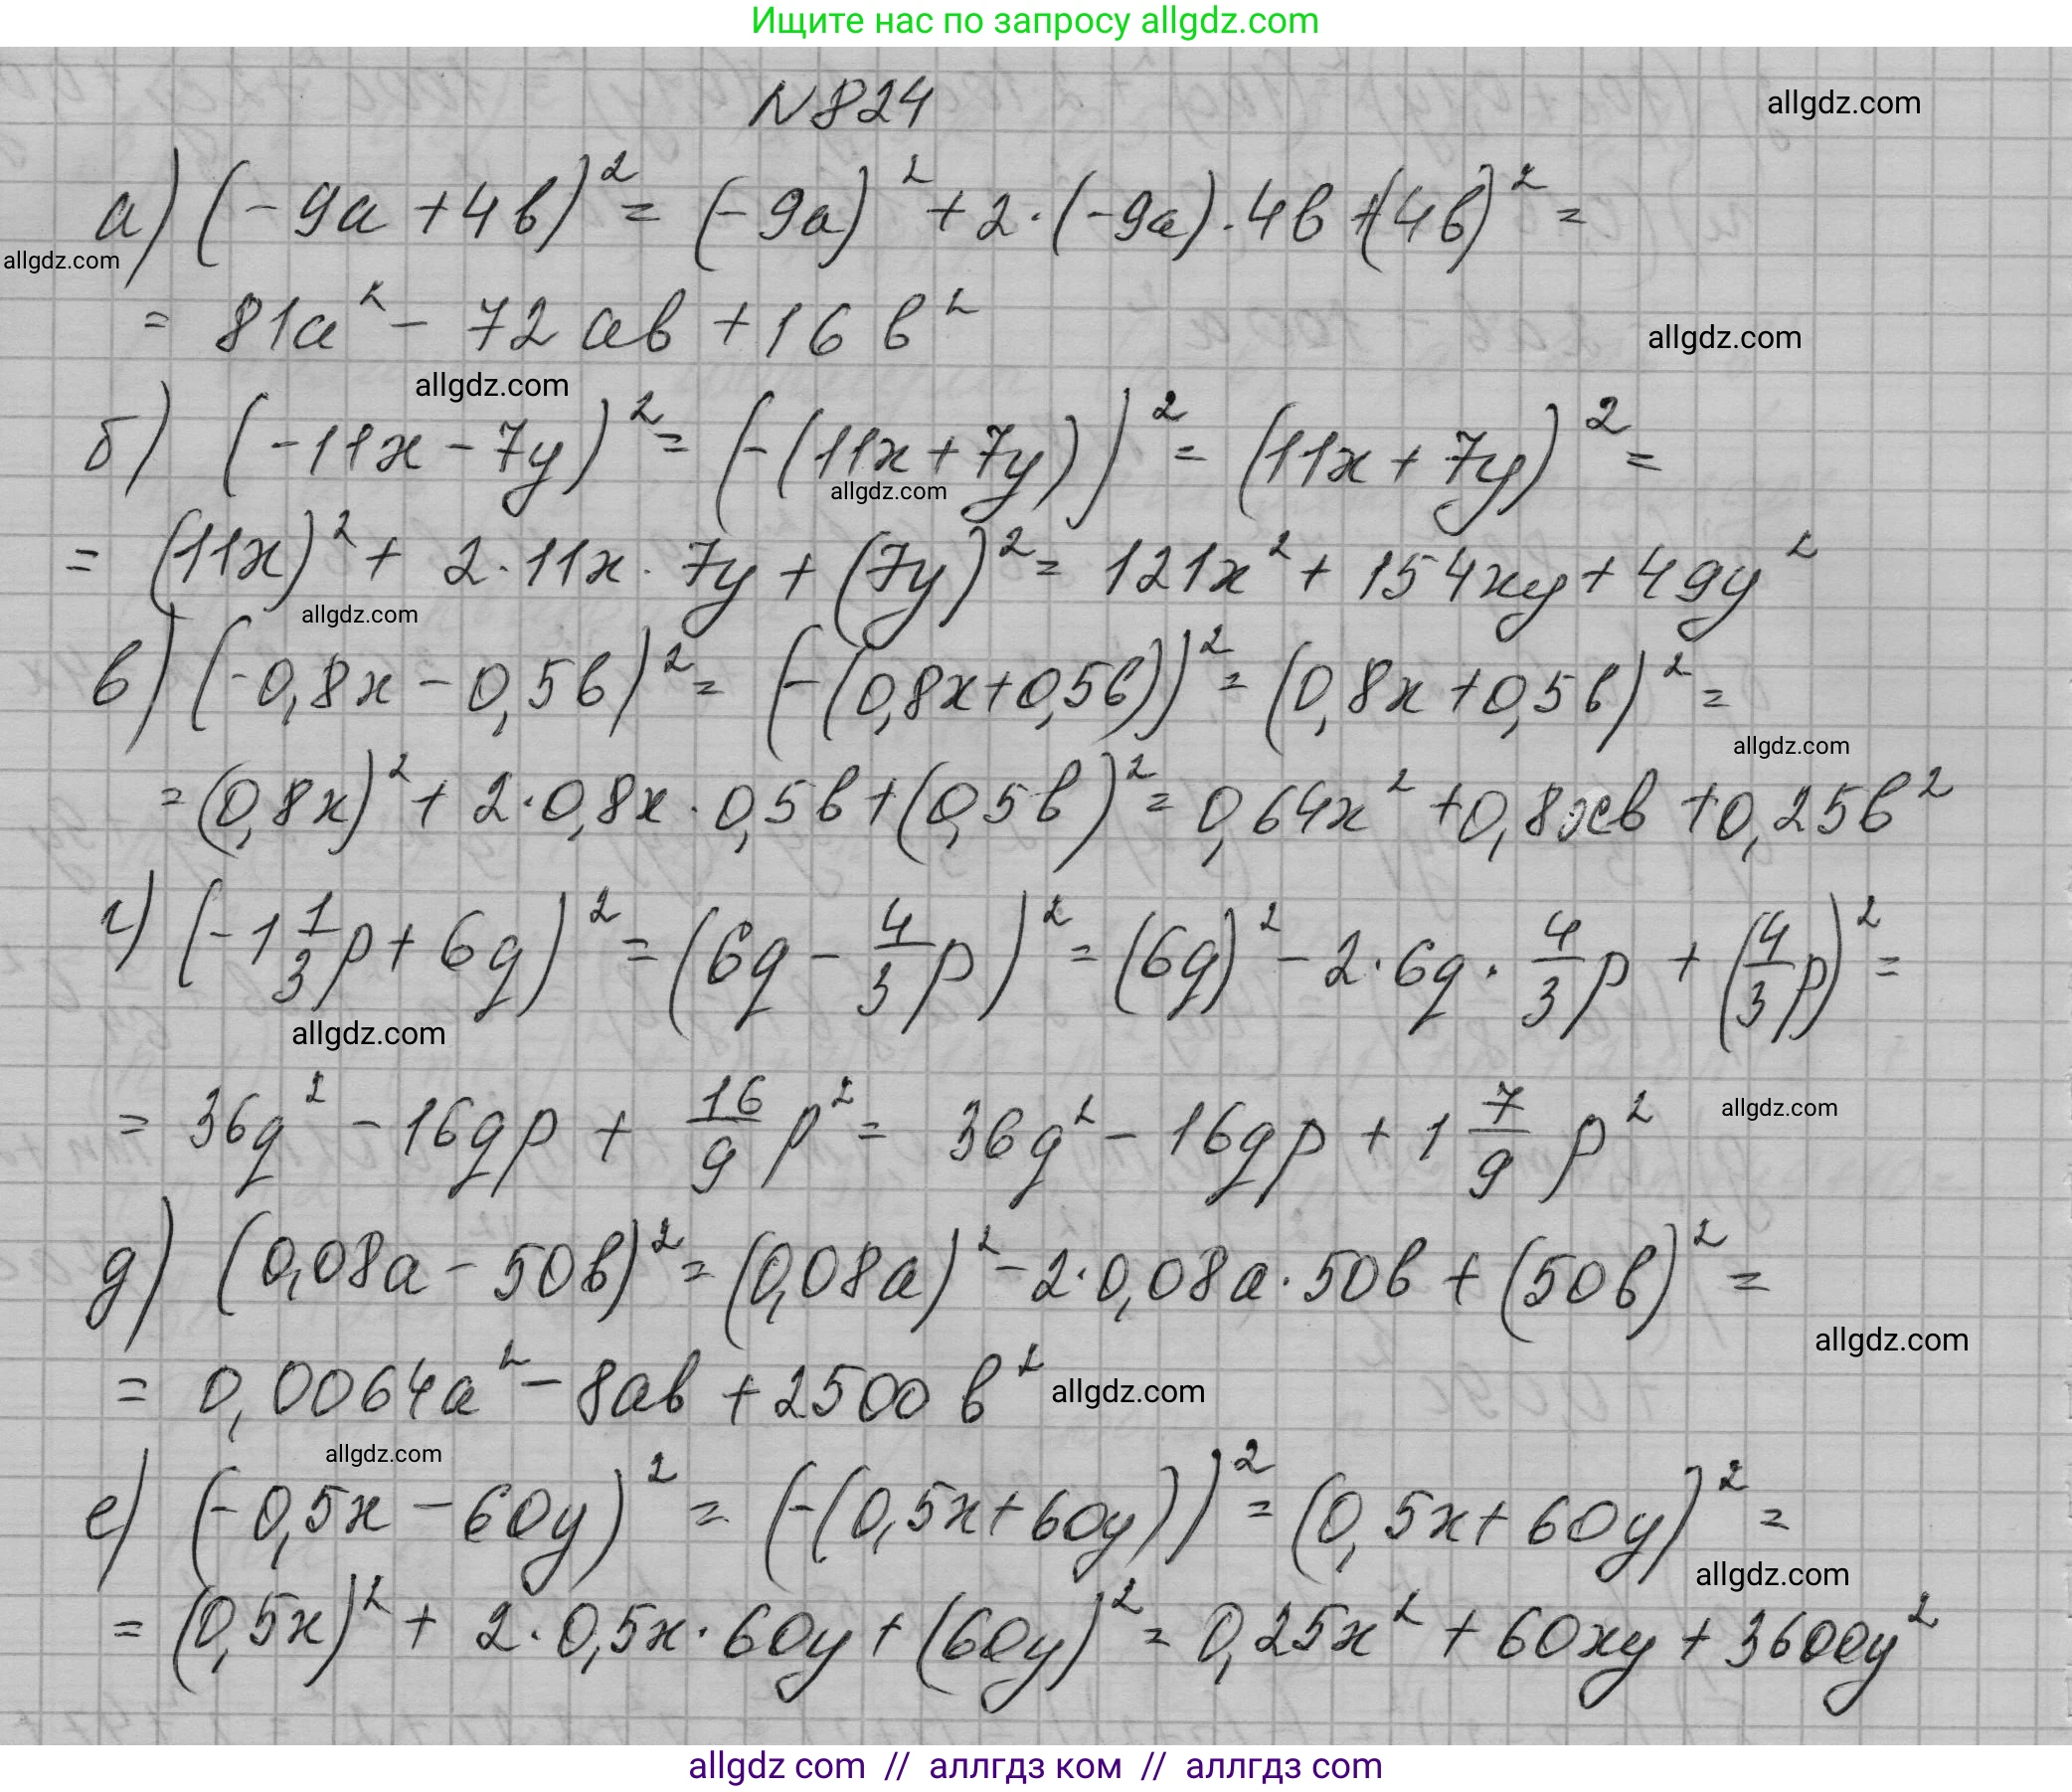 Ищите нас по запросу allgdz.com
N824
allgdz.com
а) (-9a+4b)² = (-9a)² + 2·(-9a)·4b+(4b)² =
allgdz.com
= 81a² - 72ab + 16b²
allgdz.com
allgdz.com
б) (-11x-7y)² = (-(11x+7y))² = (11x+7y)² =
allgdz.com
= (11x)² + 2·11x·7y + (7y)² = 121x² + 154xy + 49y²
allgdz.com
в) (-0,8x-0,5b)² = (-(0,8x+0,5b))² = (0,8x+0,5b)² =
allgdz.com
= (0,8x)² + 2·0,8x·0,5b+(0,5b)² = 0,64x² + 0,8xb + 0,25b²
г) (-1 1/3 p + 6q)² = (6q - 4/3 p)² = (6q)² - 2·6q·4/3 p + (4/3 p)² =
allgdz.com
= 36q² - 16qp + 16/9 p² = 36q² - 16qp + 1 7/9 p²
allgdz.com
д) (0,08a-50b)² = (0,08a)² - 2·0,08a·50b + (50b)² =
allgdz.com
= 0,0064a² - 8ab + 2500b²
allgdz.com
allgdz.com
е) (-0,5x-60y)² = (-(0,5x+60y))² = (0,5x+60y)² =
allgdz.com
= (0,5x)² + 2·0,5x·60y + (60y)² = 0,25x² + 60xy + 3600y²
allgdz.com // аллгдз ком // аллгдз com